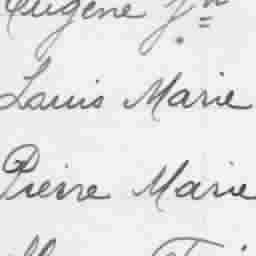 Eugène Jn
Louis Marie
Pierre Marie